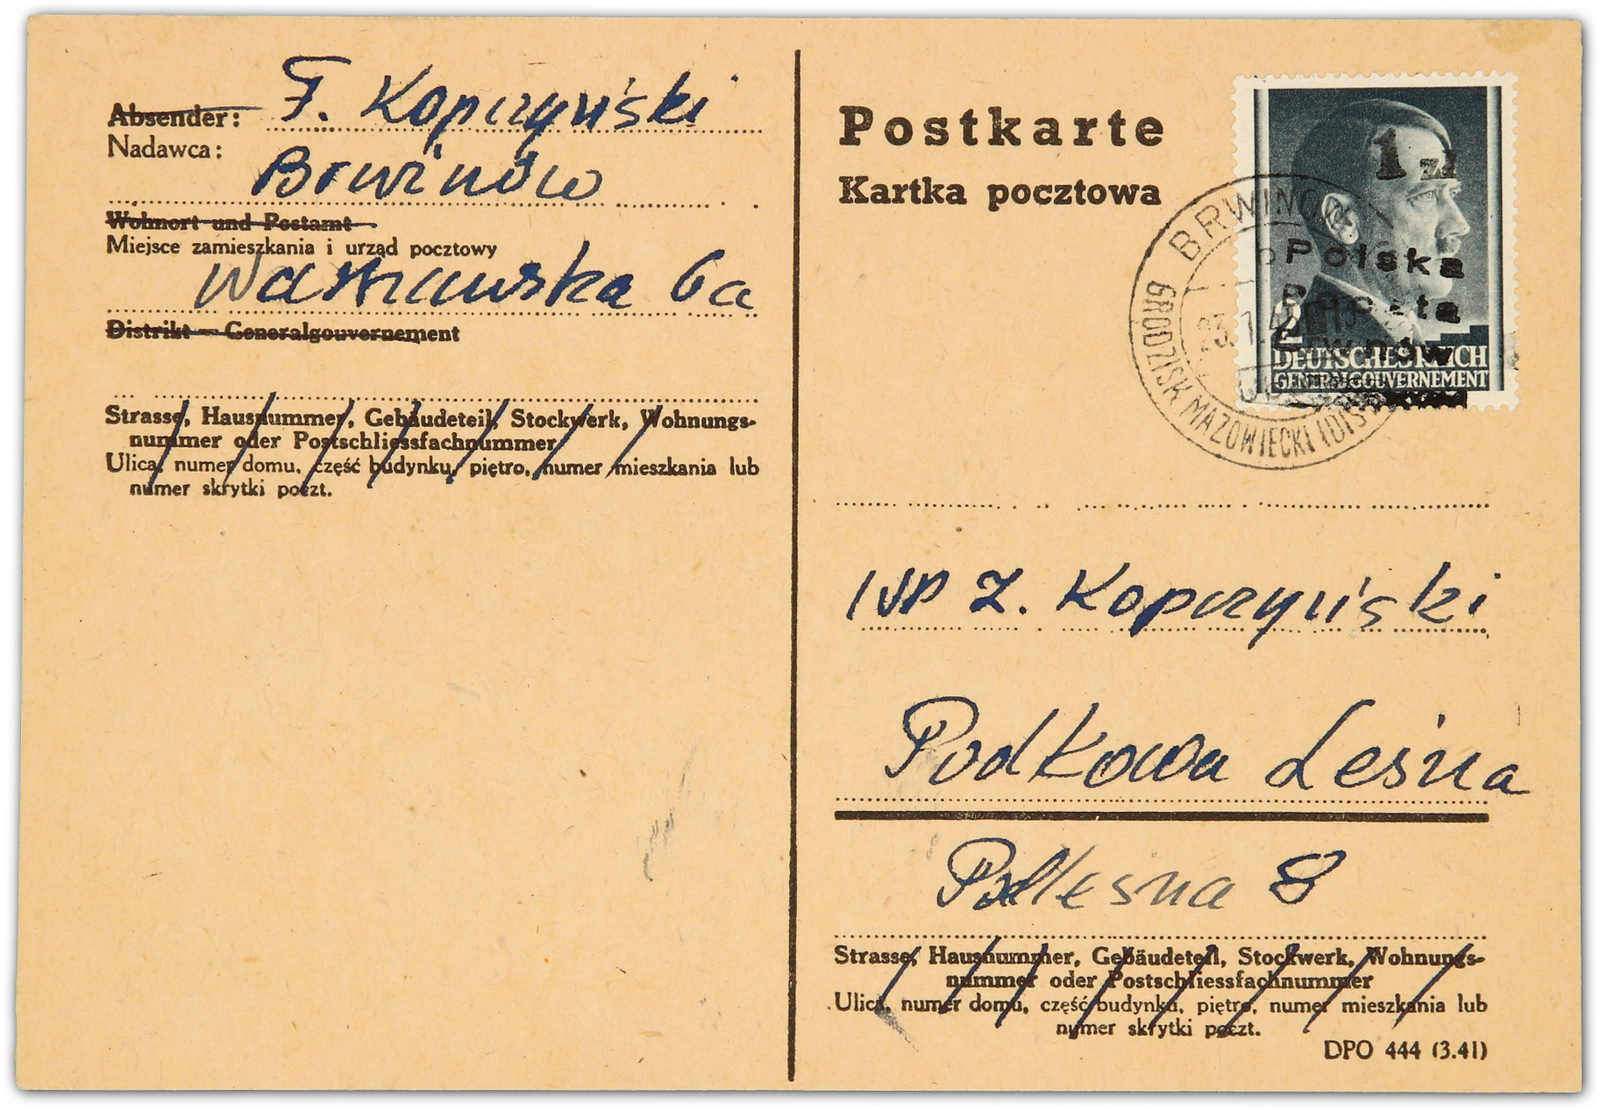 Absender:
Nadawca:
F. Kopczyński
Brwinów
Wohnort und Postamt
Miejsce zamieszkania i urząd pocztowy
Warszawska 6a
Distrikt — Generalgouvernement
Strasse, Hausnummer, Gebäudeteil, Stockwerk, Wohnungs-
nummer oder Postschliessfachnummer
Ulica, numer domu, część budynku, piętro, numer mieszkania lub
numer skrytki poczt.
Postkarte
Kartka pocztowa
1 zł
Polska
Poczta
2
DEUTSCHES REICH
GENERALGOUVERNEMENT
BRWINÓW
GRODZISK MAZOWIECKI (DIST
WP Z. Kopczyński
Podkowa Leśna
Podleśna 8
Strasse, Hausnummer, Gebäudeteil, Stockwerk, Wohnungs-
nummer oder Postschliessfachnummer
Ulica, numer domu, część budynku, piętro, numer mieszkania lub
numer skrytki poczt.
DPO 444 (3.41)